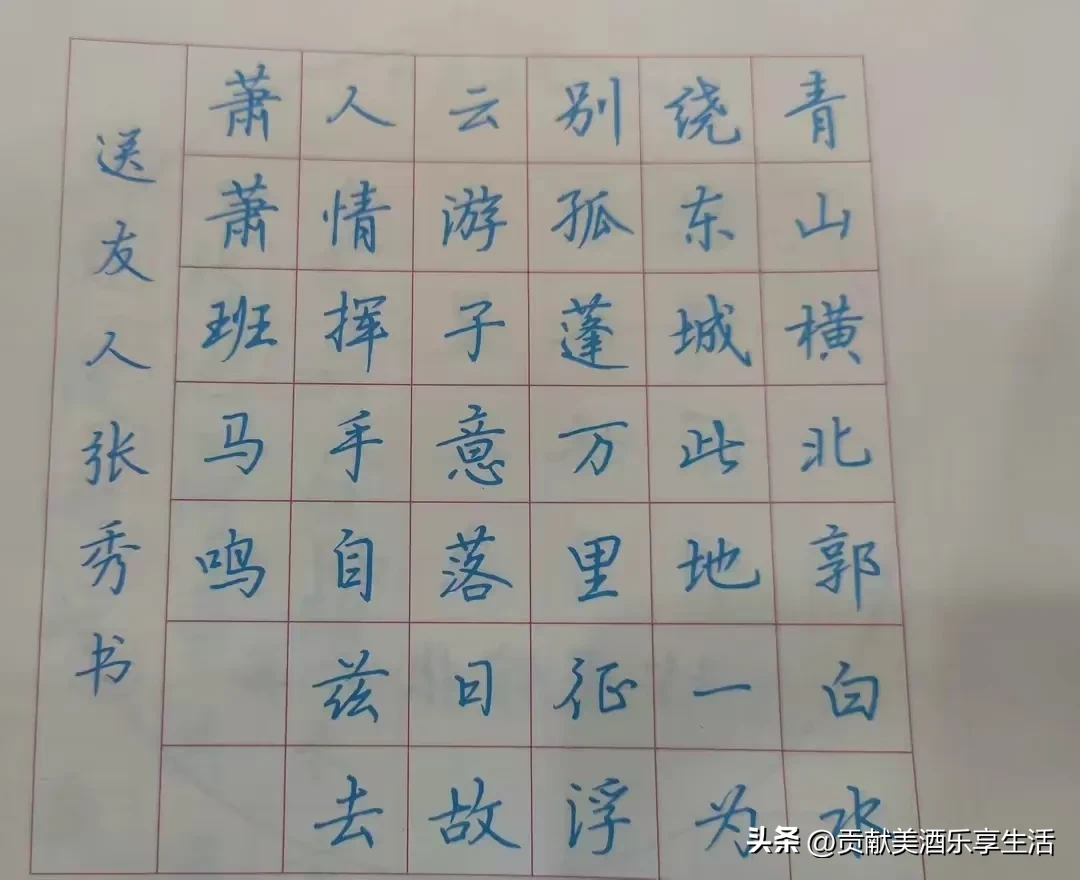 青山横北郭白水
绕东城此地一为
别孤蓬万里征浮
云游子意落日故
人情挥手自兹去
萧萧班马鸣
送友人张秀书
头条 @贡献美酒乐享生活